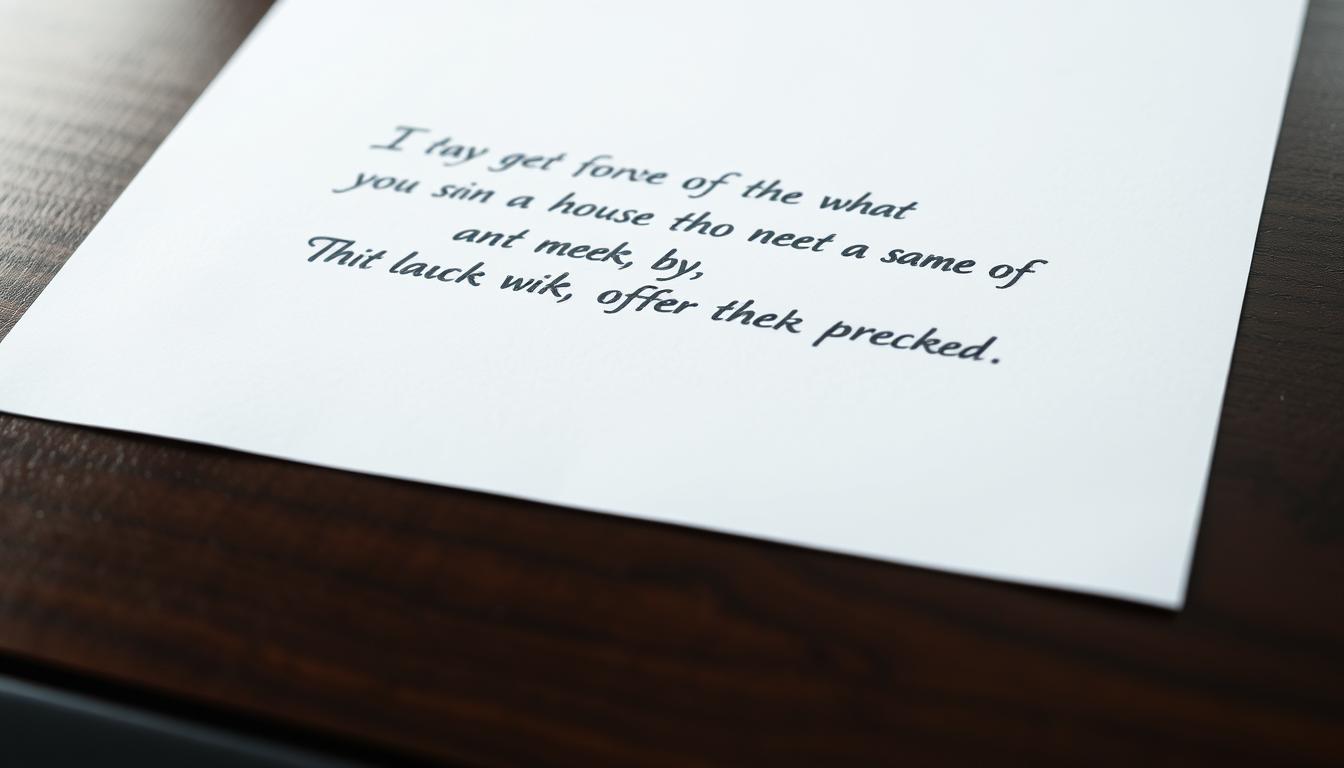 I tay get forve of the what
you sin a house tho neet a same of
ant meek, by,
Thit lauck wik, offer thek precked.